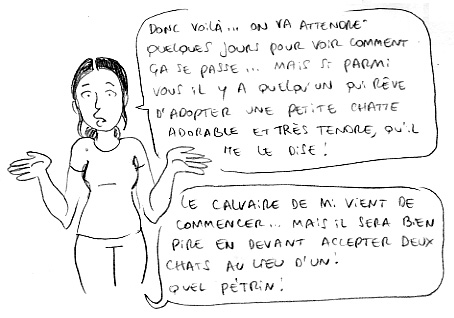 DONC VOILÀ... ON VA ATTENDRE
QUELQUES JOURS POUR VOIR COMMENT
ÇA SE PASSE... MAIS SI PARMI
VOUS IL Y A QUELQU'UN QUI RÊVE
D'ADOPTER UNE PETITE CHATTE
ADORABLE ET TRÈS TENDRE, QU'IL
ME LE DISE!
LE CALVAIRE DE MI VIENT DE
COMMENCER... MAIS IL SERA BIEN
PIRE EN DEVANT ACCEPTER DEUX
CHATS AU LIEU D'UN!
QUEL PÉTRIN!